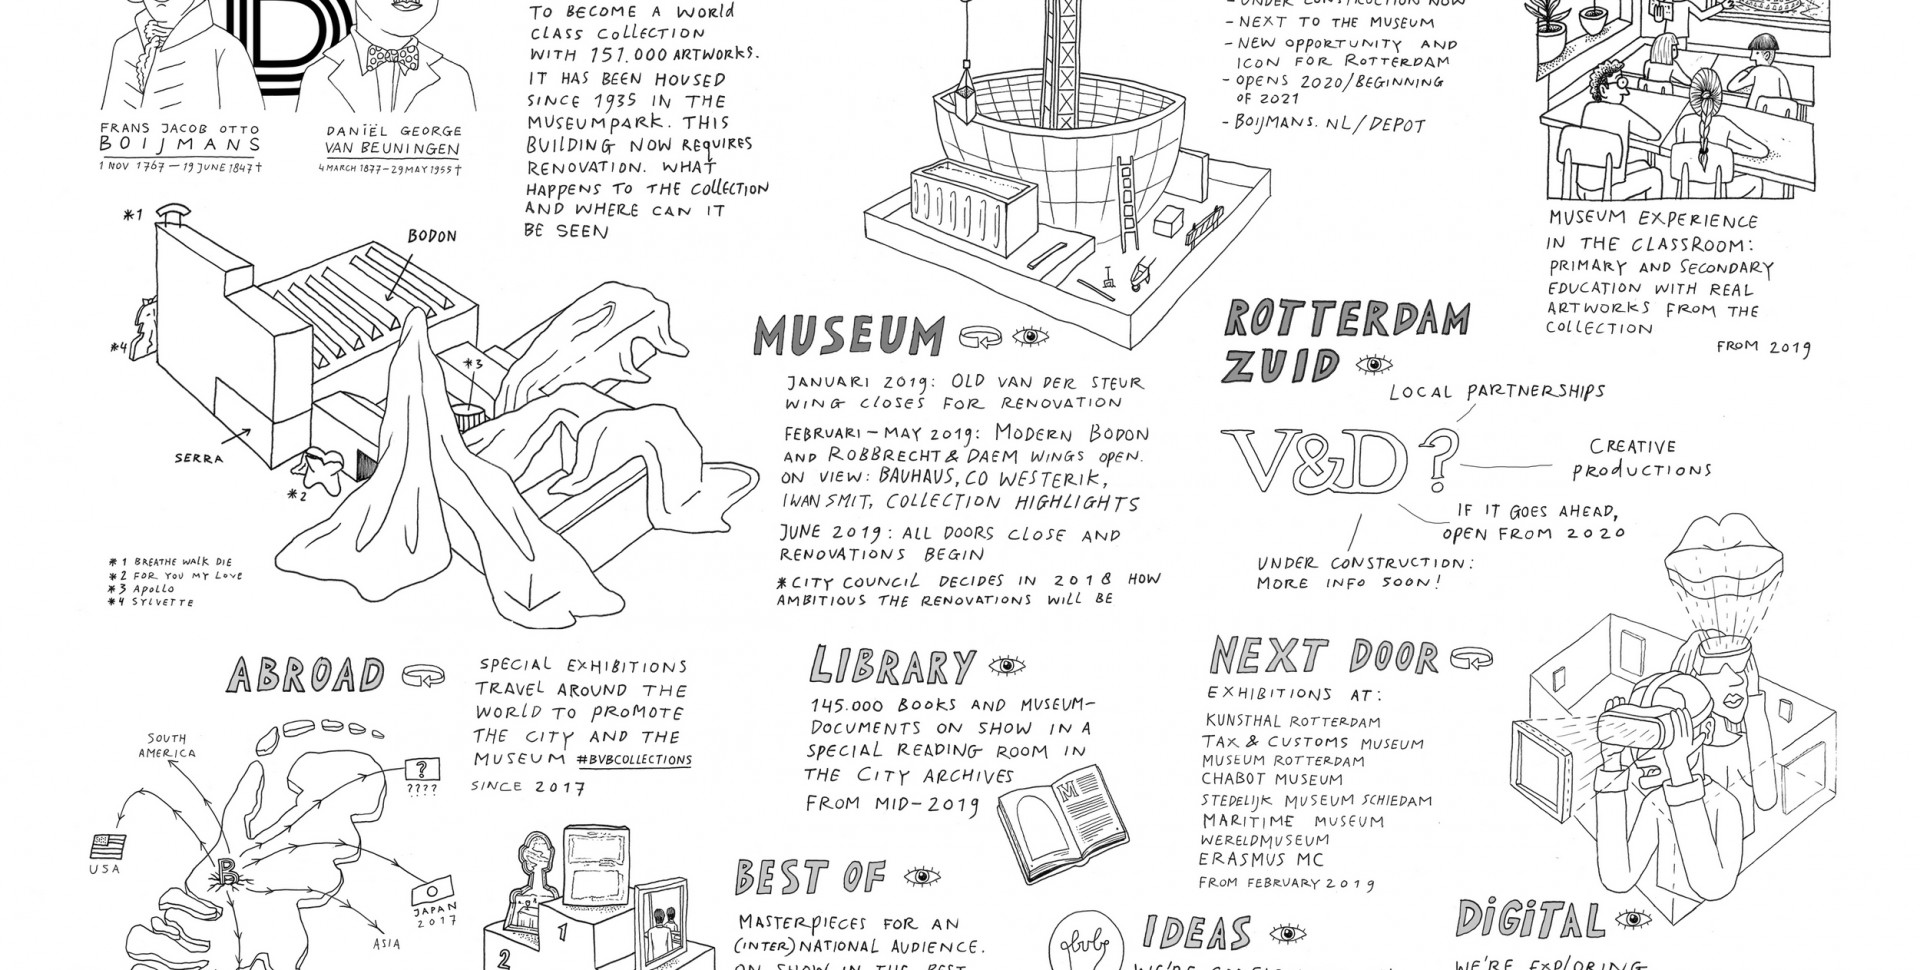 TO BECOME A WORLD
CLASS COLLECTION
WITH 151.000 ARTWORKS.
IT HAS BEEN HOUSED
SINCE 1935 IN THE
MUSEUMPARK. THIS
BUILDING NOW REQUIRES
RENOVATION. WHAT
HAPPENS TO THE COLLECTION
AND WHERE CAN IT
BE SEEN
B
FRANS JACOB OTTO
BOIJMANS
1 NOV 1767 – 19 JUNE 1847 †
DANIËL GEORGE
VAN BEUNINGEN
4 MARCH 1877 – 29 MAY 1955 †
- UNDER CONSTRUCTION NOW
- NEXT TO THE MUSEUM
- NEW OPPORTUNITY AND
ICON FOR ROTTERDAM
- OPENS 2020/BEGINNING
OF 2021
- BOIJMANS.NL/DEPOT
MUSEUM EXPERIENCE
IN THE CLASSROOM:
PRIMARY AND SECONDARY
EDUCATION WITH REAL
ARTWORKS FROM THE
COLLECTION
FROM 2019
*1
BODON
*4
*3
SERRA
*2
*1 BREATHE WALK DIE
*2 FOR YOU MY LOVE
*3 APOLLO
*4 SYLVETTE
MUSEUM
JANUARI 2019: OLD VAN DER STEUR
WING CLOSES FOR RENOVATION
FEBRUARI – MAY 2019: MODERN BODON
AND ROBBRECHT & DAEM WINGS OPEN.
ON VIEW: BAUHAUS, CO WESTERIK,
IWAN SMIT, COLLECTION HIGHLIGHTS
JUNE 2019: ALL DOORS CLOSE AND
RENOVATIONS BEGIN
*CITY COUNCIL DECIDES IN 2018 HOW
AMBITIOUS THE RENOVATIONS WILL BE
ROTTERDAM
ZUID
LOCAL PARTNERSHIPS
V&D?
CREATIVE
PRODUCTIONS
IF IT GOES AHEAD,
OPEN FROM 2020
UNDER CONSTRUCTION:
MORE INFO SOON!
ABROAD
SPECIAL EXHIBITIONS
TRAVEL AROUND THE
WORLD TO PROMOTE
THE CITY AND THE
MUSEUM #BVBCOLLECTIONS
SINCE 2017
SOUTH
AMERICA
?
????
USA
B
JAPAN
2017
ASIA
LIBRARY
145.000 BOOKS AND MUSEUM-
DOCUMENTS ON SHOW IN A
SPECIAL READING ROOM IN
THE CITY ARCHIVES
FROM MID-2019
M
NEXT DOOR
EXHIBITIONS AT:
KUNSTHAL ROTTERDAM
TAX & CUSTOMS MUSEUM
MUSEUM ROTTERDAM
CHABOT MUSEUM
STEDELIJK MUSEUM SCHIEDAM
MARITIME MUSEUM
WERELDMUSEUM
ERASMUS MC
FROM FEBRUARY 2019
1
2
BEST OF
MASTERPIECES FOR AN
(INTER)NATIONAL AUDIENCE.
ON SHOW IN THE BEST
bvb
IDEAS
DIGITAL
WE'RE EXPLORING